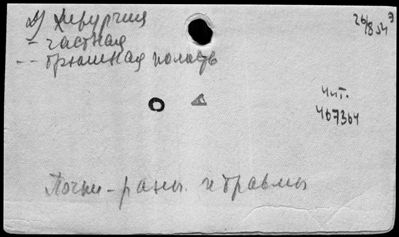 Д) Хирургия
- частная
-- брюшная полость
26/854 э
Чит.
467364
Почки - раны и травмы